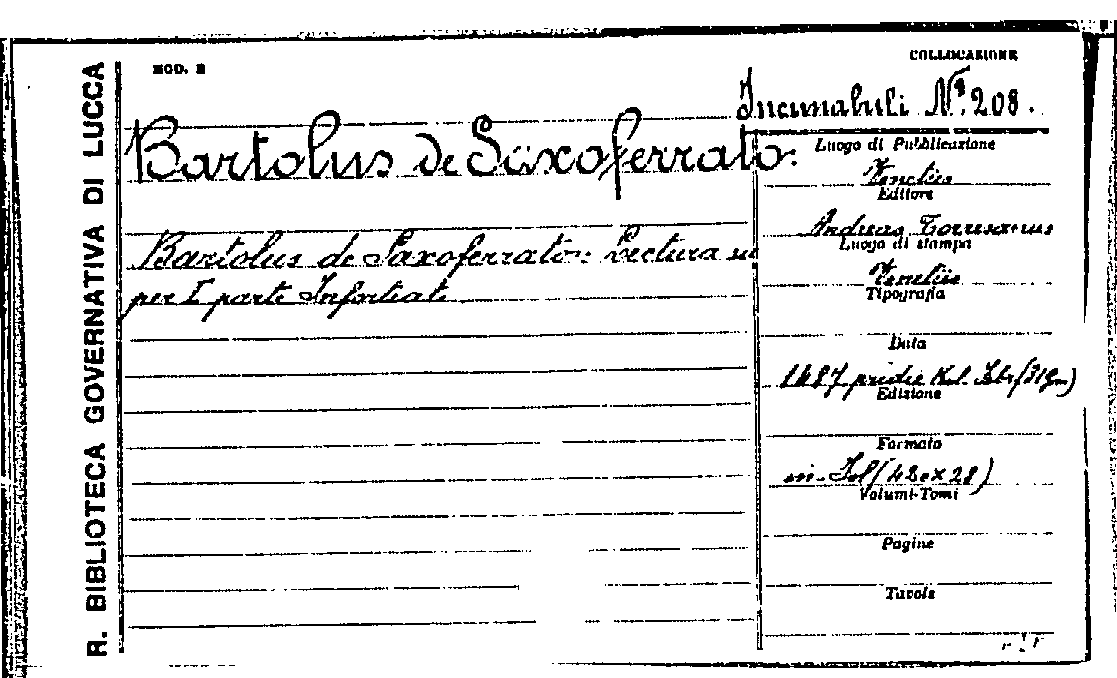 R. BIBLIOTECA GOVERNATIVA DI LUCCA
MOD. E
COLLOCAZIONE
Incunabuli Nº. 208.
Bartolus de Saxoferrato:
Bartolus de Saxoferrato: Lectura su
per I parte Infortiati
Luogo di Pubblicazione
Venetiis
Editore
Andreas Torresanus
Luogo di stampa
Venetiis
Tipografia
Data
1487 pridie Kal. Febr (31 Gen)
Edizione
Formato
in-Fol (42 x 28)
Volumi-Tomi
Pagine
Tavole